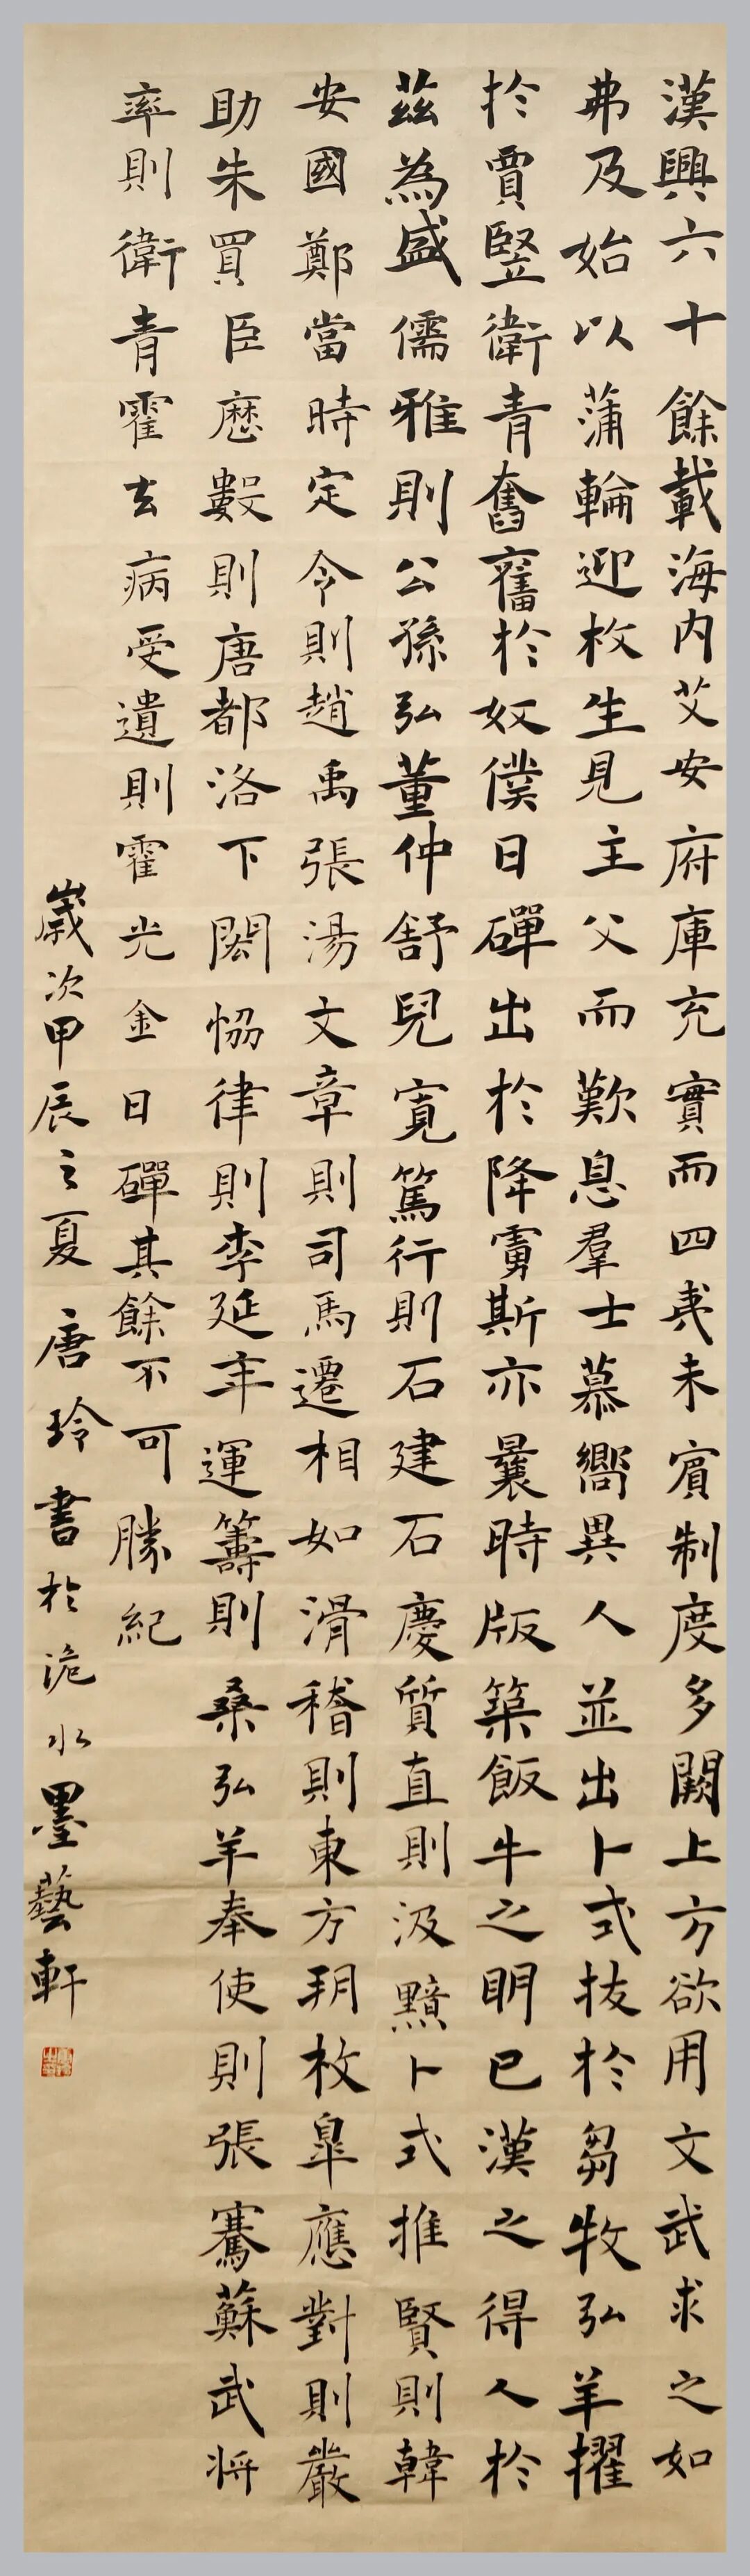 漢興六十餘載海内艾安府庫充實而四夷未賓制度多闕上方欲用文武求之如
弗及始以蒲輪迎枚生見主父而歎息羣士慕嚮異人並出卜式拔於芻牧弘羊擢
於賈豎衛青奮奮於奴僕日磾出於降虜斯亦曩時版築飯牛之明已漢之得人於
茲為盛儒雅則公孫弘董仲舒兒寬篤行則石建石慶質直則汲黯卜式推賢則韓
安國鄭當時定令則趙禹張湯文章則司馬遷相如滑稽則東方朔枚皐應對則嚴
助朱買臣歷數則唐都洛下閎恊律則李延年運籌則桑弘羊奉使則張騫蘇武將
率則衛青霍去病受遺則霍光金日磾其餘不可勝紀
歲次甲辰之夏唐玲書於洈水墨藝軒